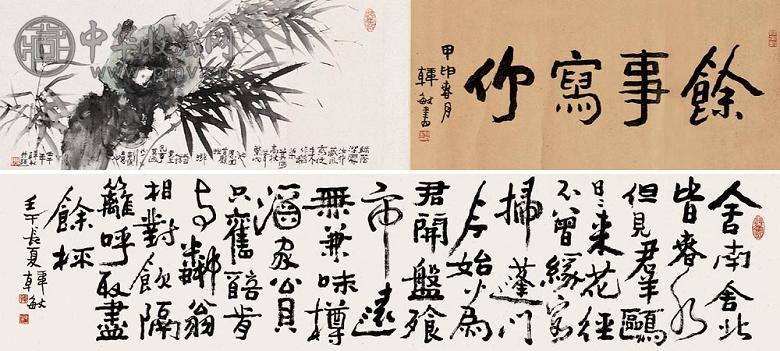 中华收藏网
餘事寫竹
甲申春月
韓敏書
舍南舍北
皆春水
但見群鷗
日々來花徑
不曾緣客
掃蓬門
今始為
君開盤飧
市遠
無兼味樽
酒家貧
只舊醅肯
与鄰翁
相對飲隔
籬呼取盡
餘杯
壬午長夏韓敏